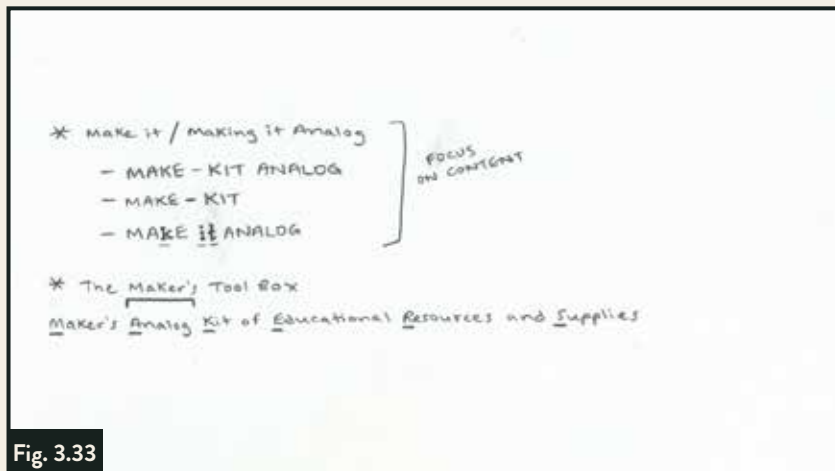 * Make it / Making it Analog
- MAKE - KIT ANALOG
- MAKE - KIT
- MAKE it ANALOG
FOCUS
ON CONTENT
* The Maker's Tool Box
Maker's Analog Kit of Educational Resources and Supplies
Fig. 3.33